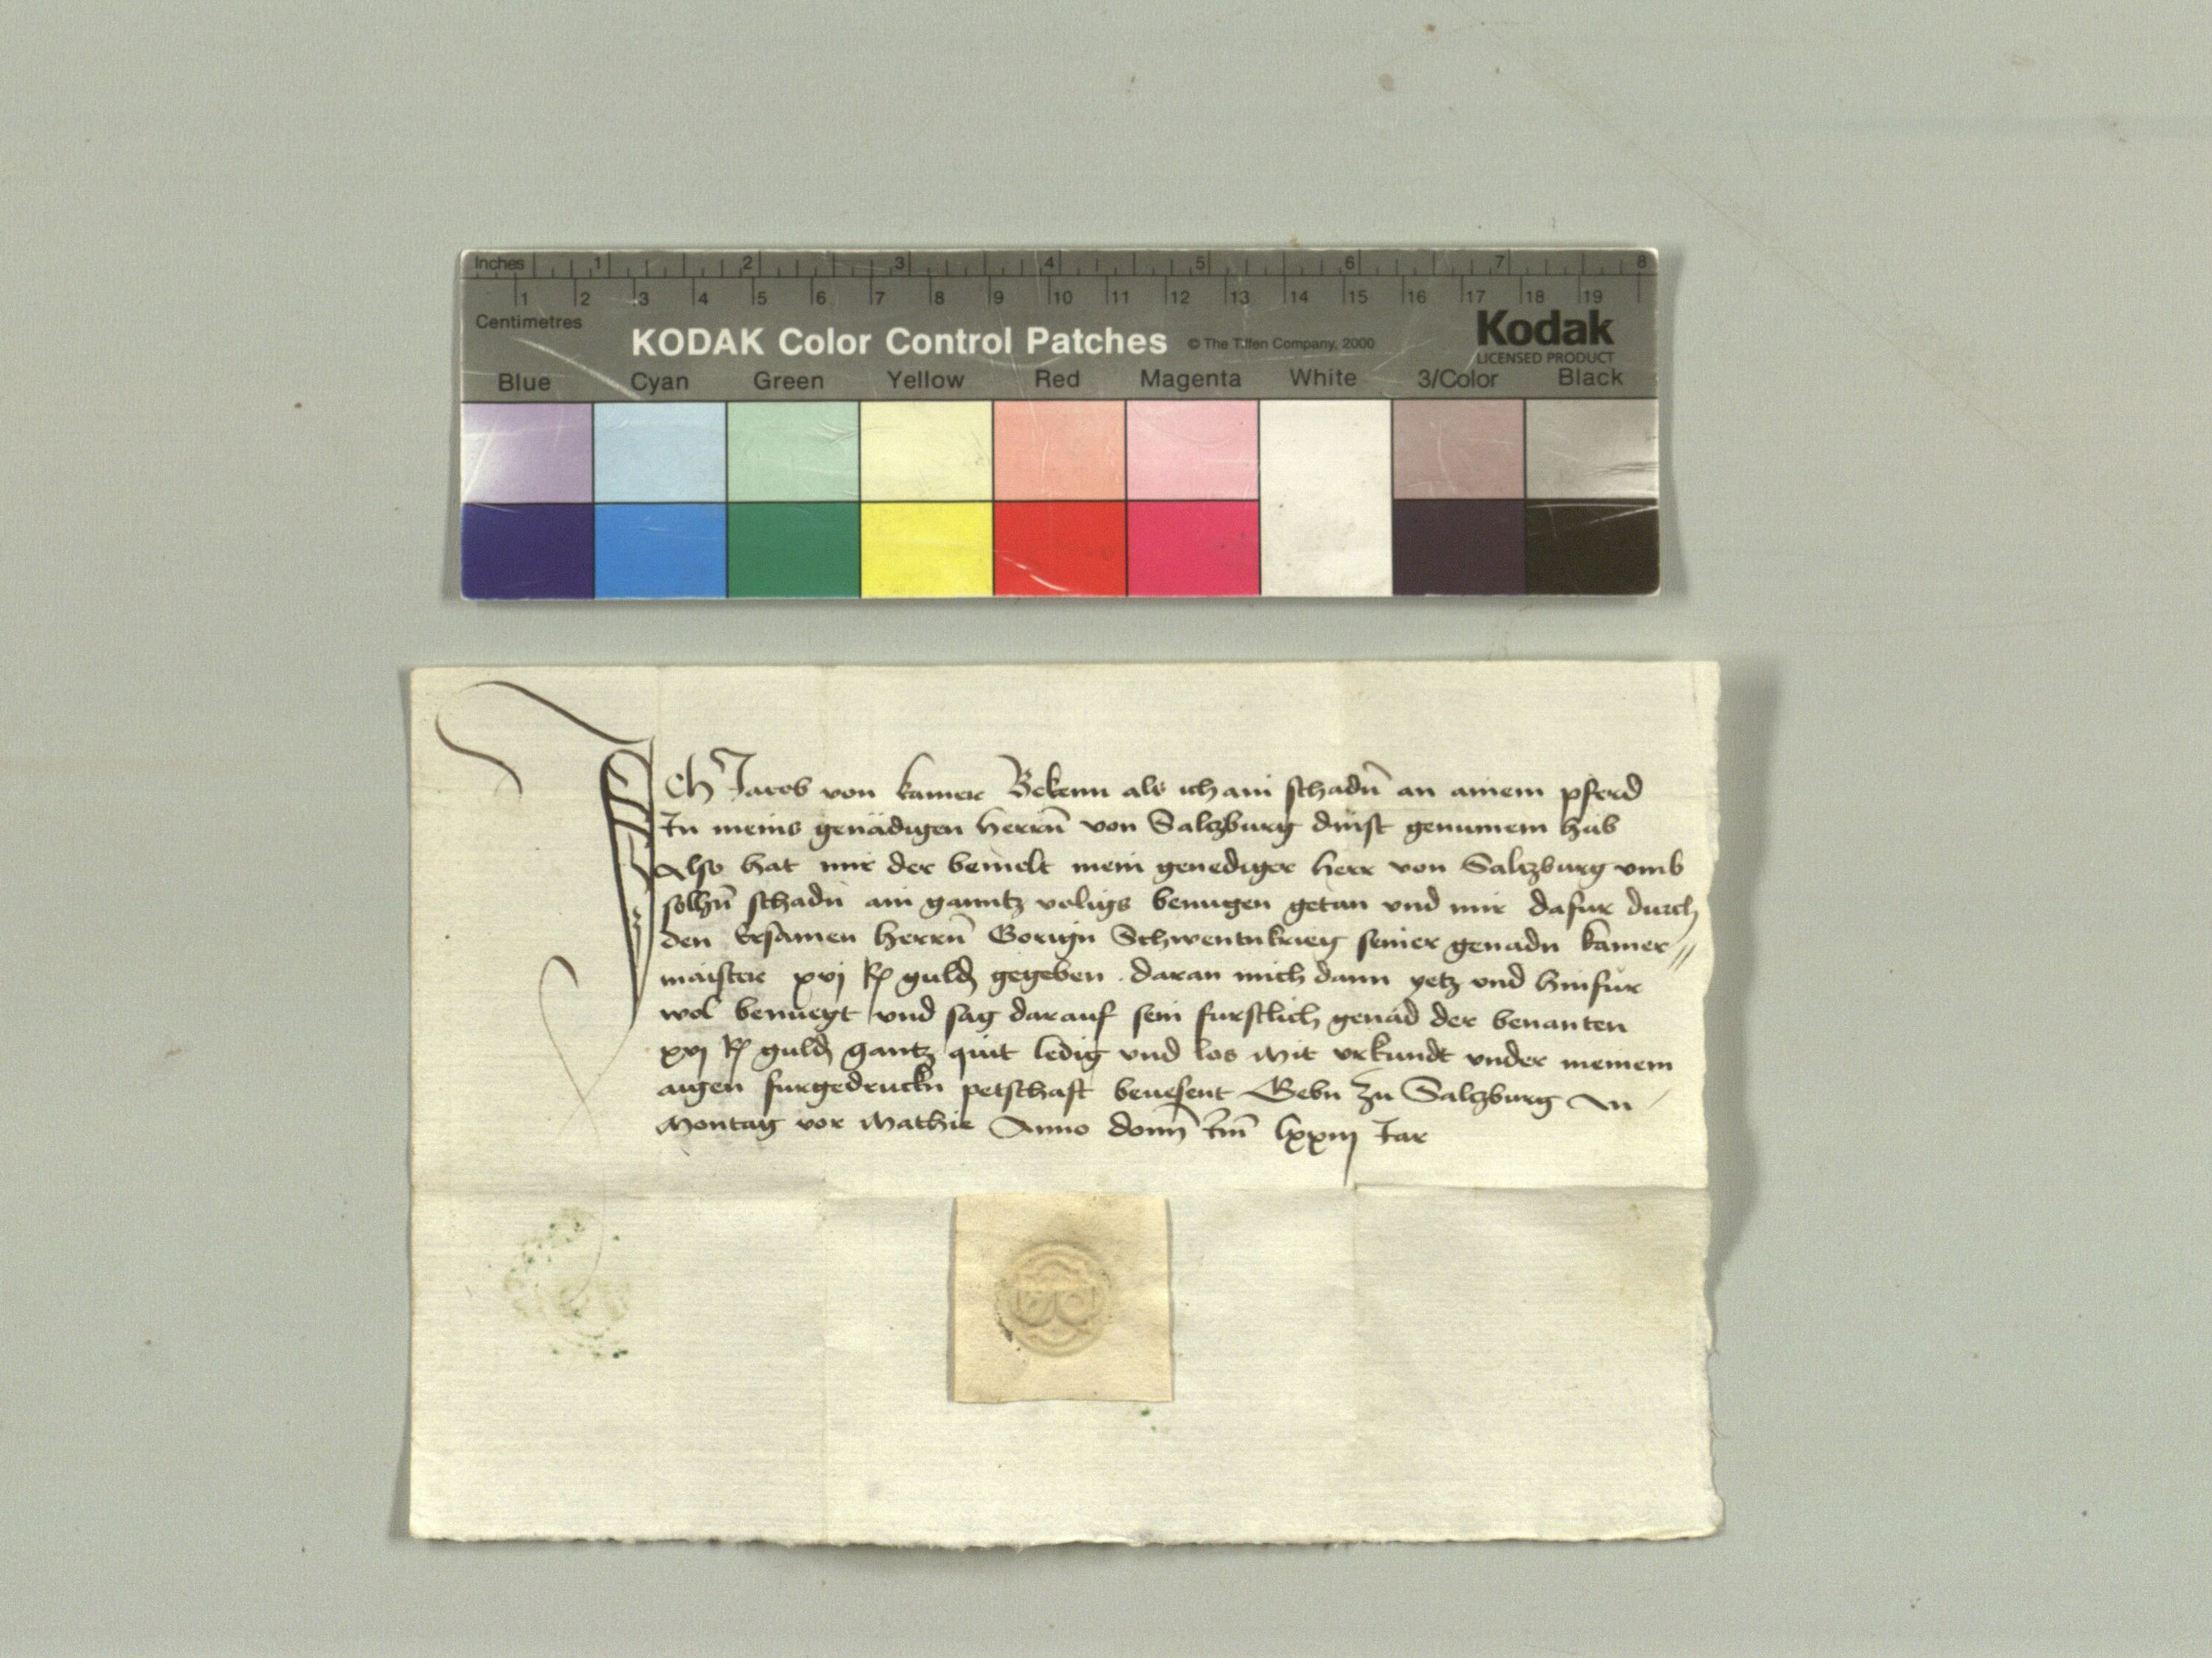 Inches 1 2 3 4 5 6 7 8
1 2 3 4 5 6 7 8 9 10 11 12 13 14 15 16 17 18 19
Centimetres
KODAK Color Control Patches © The Tiffen Company, 2000 Kodak
LICENSED PRODUCT
Blue Cyan Green Yellow Red Magenta White 3/Color Black
Ich Jacob von kamer Bekenn als ich ain schadn̄ an ainem pferd
In meins genädigen herrn̄ von Salczburg dinst genumem hab
Also hat mir der bemelt mein genediger herr von Salczburg vmb
solhn̄ schadn ain ganntz voligs benugen getan vnd mir dafur durch
den Ersamen herrn̄ Gorign Schwentnkrieg seiner genadn kamer//
maister xvj guld gegeben . daran mich dann yetz vnd hinfur
wol benuegt vnd sag darauf sein furstlich genad der benanten
xvj guld gantz quit ledig vnd los Mit vrkundt vnder meinem
aigen furgedruckn petschaft Gebn Zu Salczburg An
Montag vor Mathie Anno domī lxxiij Jar